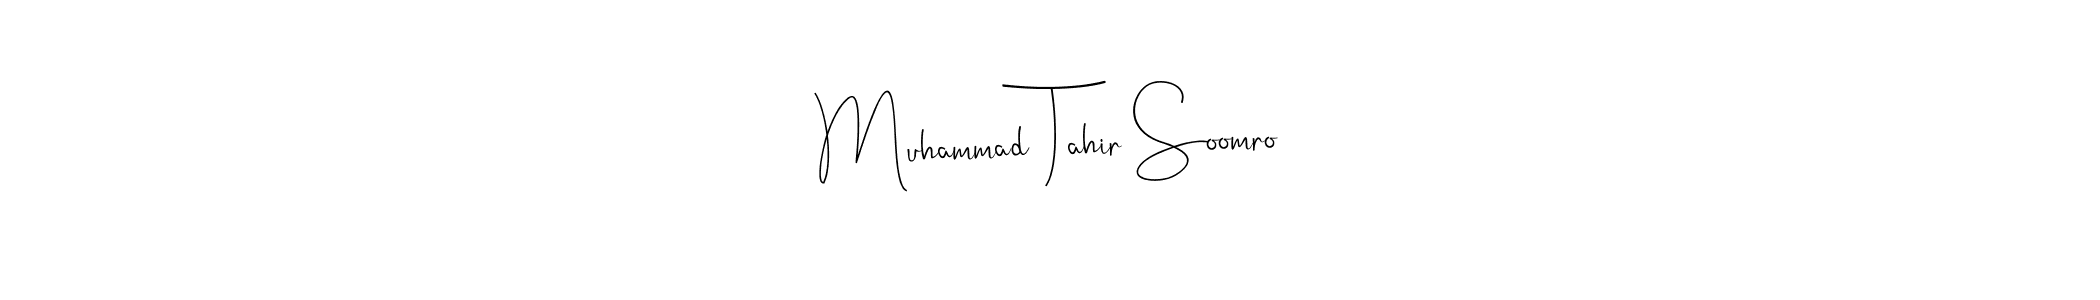 Muhammad Tahir Soomro